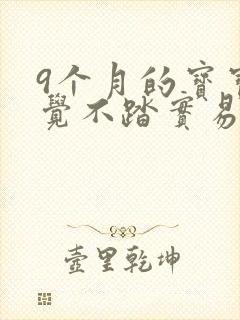 9个月的寶
覺不踏實易
壺里乾坤